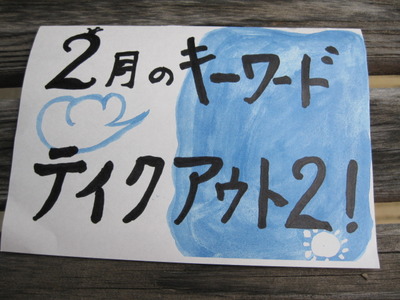 2月のキーワード
テイクアウト2!